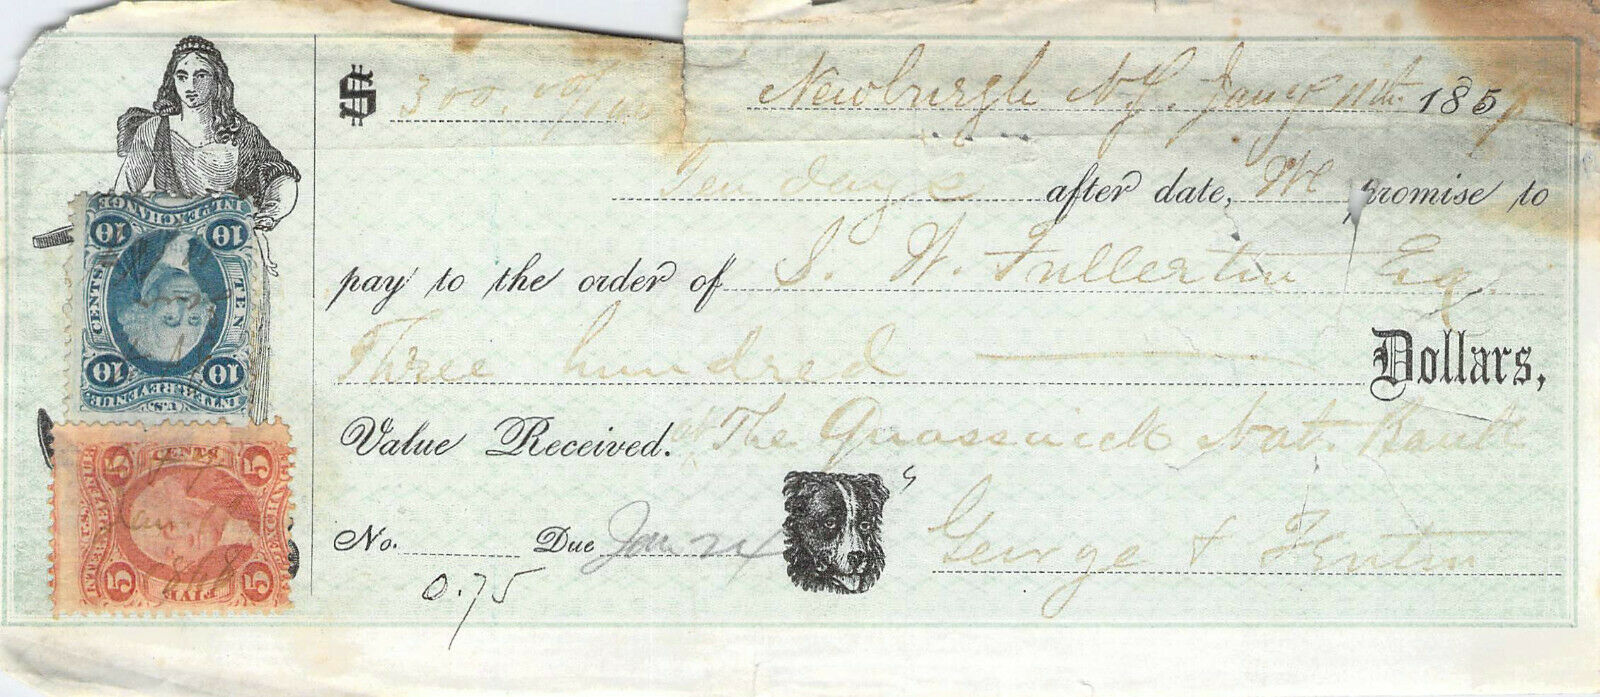 $ 300. 00/100 Newburgh N.Y. Jany 11th. 185
Ten days after date, We promise to
pay to the order of S. W. Fullerton Esq.
Three hundred Dollars,
Value Received. at The Quassaick Nat. Bank
No. Due Jan 24 George & Fenton
0.75
10 10
U.S. INTER. REVENUE
TEN CENTS
INL. EXCHANGE
10 10
5 CENTS 5
INTER. REVENUE U.S.
Jan.
1868
5 FIVE 5